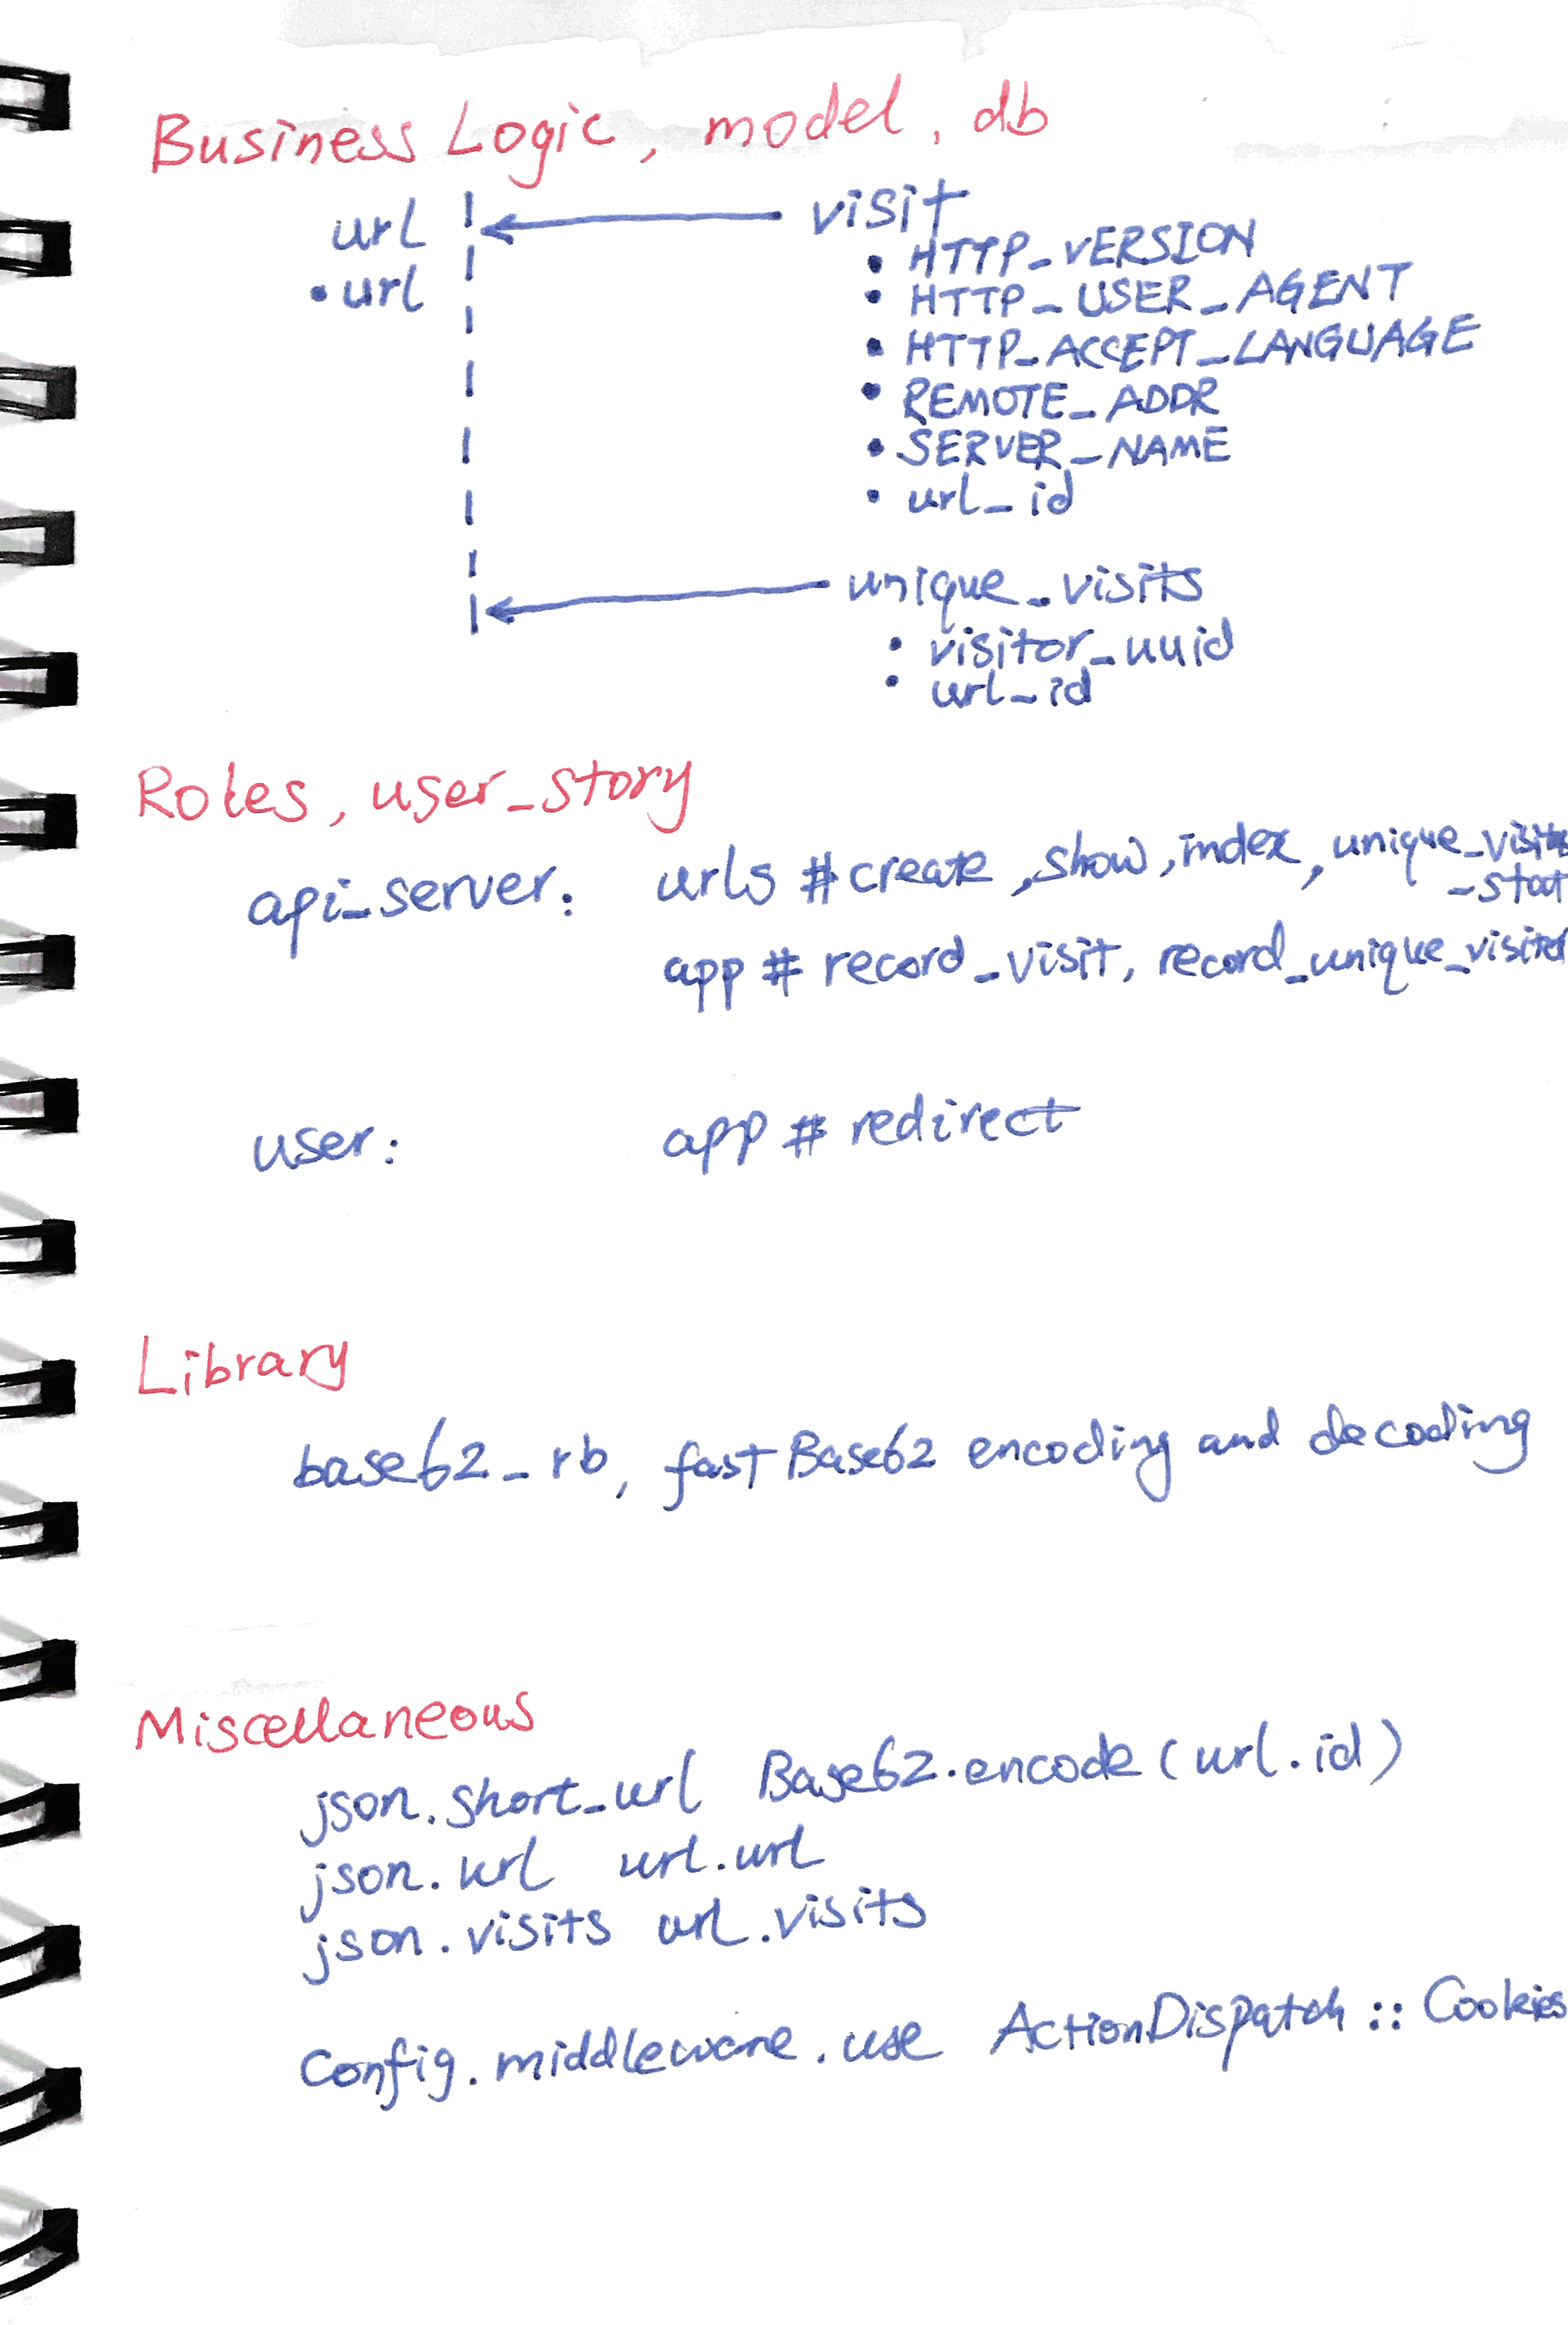 Business Logic, model, db
url
• url
visit
• HTTP_VERSION
• HTTP_USER_AGENT
• HTTP_ACCEPT_LANGUAGE
• REMOTE_ADDR
• SERVER_NAME
• url_id
unique_visits
• visitor_uuid
• url_id
Roles, user_story
api_server: urls # create, show, index, unique_visits
_stat
app # record_visit, record_unique_visitor
user: app # redirect
Library
base62_rb, fast Base62 encoding and decoding
Miscellaneous
json.short_url Base62.encode(url.id)
json.url url.url
json.visits url.visits
Config.middleware.use ActionDispatch::Cookies